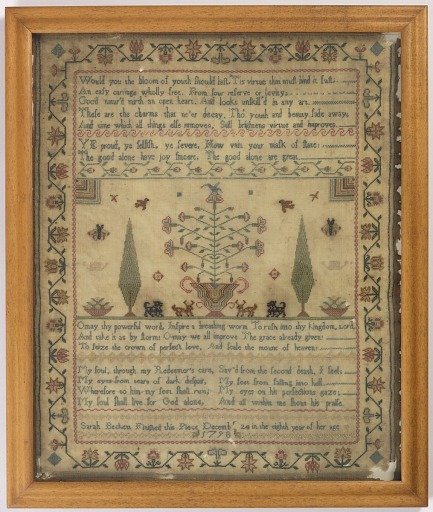 Would you the bloom of youth should last, T is virtue that must bind it fast;
An easy carriage wholly free, From sour reserve or levity;
Good natur'd mirth an open heart, And looks unskill'd in any art;
These are the charms that ne'er decay, Tho youth and beauty fade away;
And time which all things else removes, Still brightens virtue and improves.
YE proud, ye selfish, ye severe, How vain your mask of state;
The good alone have joy sincere, The good alone are great
O may thy powerful word, Inspire a breathing worm To rush into thy kingdom, Lord,
And take it as by storm O may we all improve The grace already given
To seize the crown of perfect love, And scale the mount of heaven
My soul, through my Redeemer's care, Sav'd from the second death, I feel;
My eyes from tears of dark despair, My feet from falling into hell
Wherefore to him my feet shall run; My eyes on his perfections gaze;
My soul shall live for God alone, And all within me shout his praise
Sarah Finished this Piece Decembr 24 in the eighth year of her age
1798